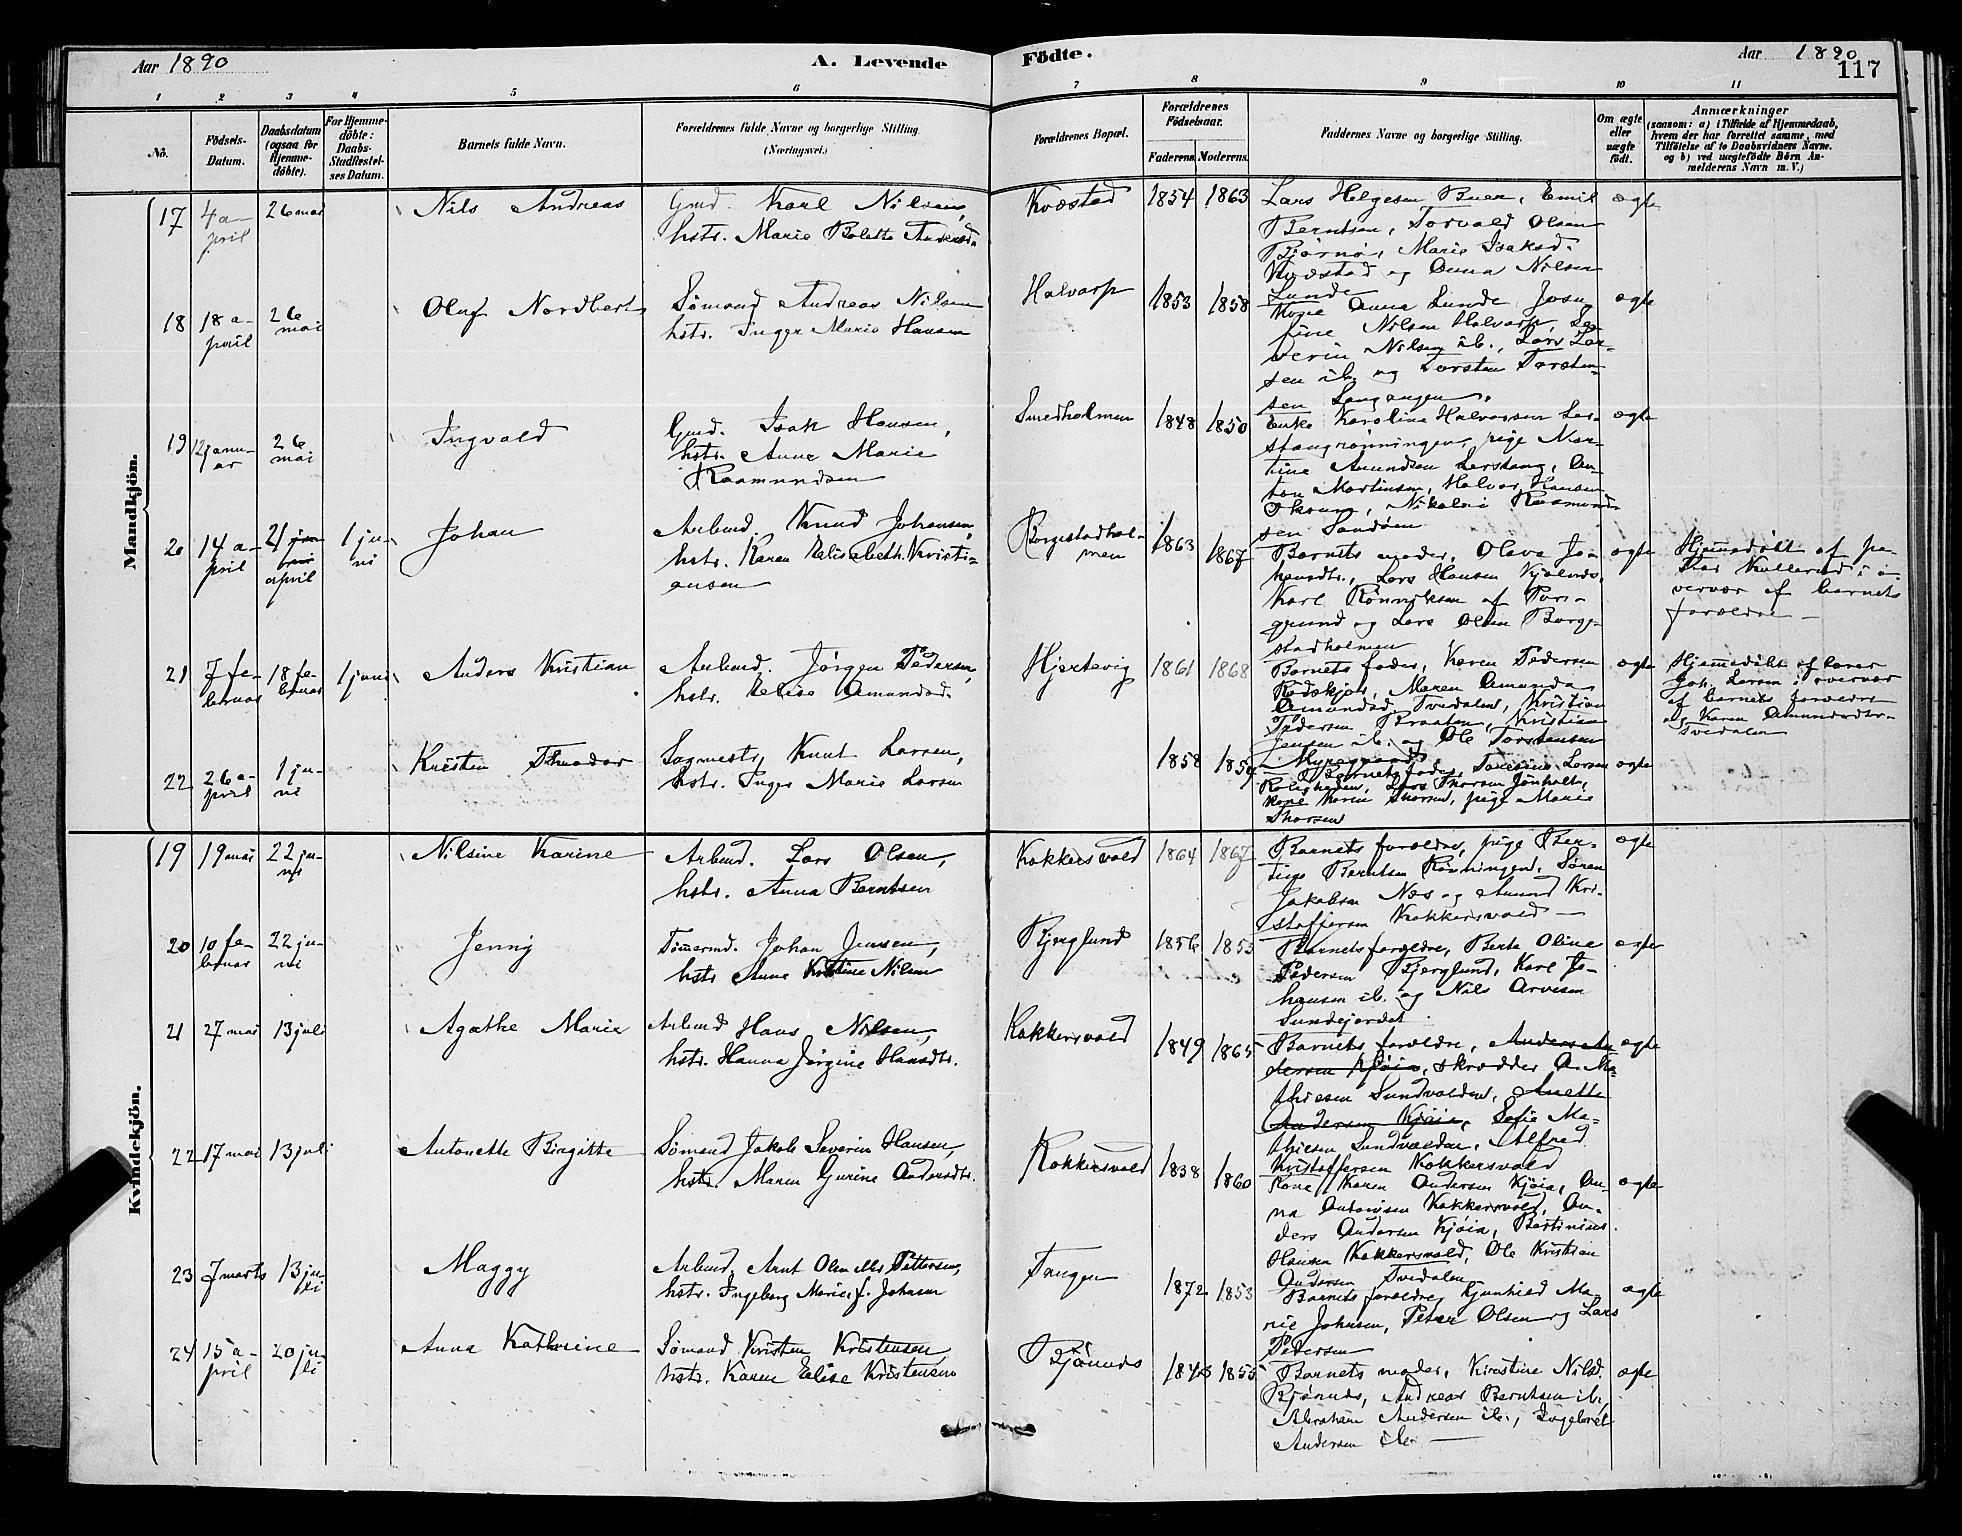 Aar 1890
A. Levende
Födte.
Aar 1890
117
1 2 3 4 5 6 7 8 9 10 11
No.
Födsels-
Datum.
Daabsdatum
(ogsaa for
Hjemme-
döbte).
For Hjemme-
döbte:
Daabs-
Stadfæstel-
ses Datum.
Barnets fulde Navn.
Forældrenes fulde Navne og borgerlige Stilling.
(Næringsvei.)
Forældrenes Bopæl.
Forældrenes
Födselsaar.
Faderens. Moderens.
Faddernes Navne og borgerlige Stilling.
Om ægte
eller
uægte
födt.
Anmærkninger
(saasom: a) i Tilfælde af Hjemmedaab,
hvem der har forrettet samme, med
Tilföielse af to Daabsvidners Navne.
og b) ved uægtefödte Börn An-
melderens Navn m. V.)
Mandkjön.
17
4 a-
pril
26 mai
Nils Andreas
Gmd. Karl Nilsen,
hstr. Marie Bolette Andersd.
Kvæstad
1854 1863
Lars Helgesen Buer, Emil
Berntsen, Torvald Olsen
Bjørnø, Marie Isaksd.
Kvæstad og Anna Nilsen
Lunde
ægte
18
18 a-
pril
26
mai
Oluf Nordbert
Sømand Andreas Nilsen
hstr. Inger Marie Hansen
Halvarp
1853 1858
Kone Anna Lunde, Jose-
fine Nilsen Halvarp, Se-
verin Nilsen ib., Lars Lar-
sen ib. og Torsten Torsten-
sen Langangen.
ægte
19
12 janu-
ar
26
mai
Ingvald
Gmd. Isak Hansen,
hstr. Anne Marie
Raamundsen
Smedholmen
1848 1850
Enke Karoline Halvorsen Ler-
stangrönningen, pige Mar-
tine Amundsen Lerstang, An-
ton Martinsen, Halvor Hansen
Oksum, Nikolai Raamund-
sen Sandöen
ægte
20
14 a-
pril
21
april
1 ju-
ni
Johan
Arbmd. Knud Johansen,
hstr. Karen Elisabeth Kristi-
ansen
Borgestadhol-
men
1863 1867
Barnets moder, Olava Jo-
hansdtr., Lars Hansen Kjølnds,
Karl Rönnvksen af Pors-
grund og Lars Olsen Borge-
stadholmen
ægte
Hjemedöbt af pa-
stor Kullerud i o-
vervær af barnets
forældre –
21
7 fe-
bruar
18 fe-
bruar
1 juni
Anders Kristian
Arbmd. Jörgen Pedersen,
hstr. Elise Amundsd.
Hjertevig
1861 1868
Barnets fader, Karen Pedersen
Rödskjær, Maren Amanda
Amundsd. Tvedalen, Kristian
Pedersen Braaten, Kristian
Jensen ib. og Ole Torstensen
Myregaard
ægte
Hjemedöbt af lærer
Joh. Larsen i overvær
af barnets forældre
og Karen Amundsdtr.
Tvedalen
22
26 a-
pril
1 ju-
ni
Kristen Theodor
Sagmestr, Knut Larsen,
hstr. Inger Marie Larsen
1858 1859
Barnets fader, Larsen
Roligheden, Lars Thorsen Jönholt,
kone Karen Thorsen, pige Marie
Thorsen
ægte
Kvindekjön.
19
19 mai
22 ju-
ni
Nilsine Karine
Arbmd. Lars Olsen,
hstr. Anna Berntsen
Kokkersvold
1864 1867
Barnets forældre, pige Ber-
tine Berntsen Rönningen, Sören
Jakobsen Næs og Amund Kri-
stoffersen Kokkersvold —
ægte
20
10 fe-
bruar
22 ju-
ni
Jenny
Tömermd. Johan Jensen,
hstr. Anne Kristine Nilsen
Bjerglund
1856 1853
Barnets forældre, Berte Oline
Pedersen Bjerglund, Karl Jo-
hansen ib. og Nils Arvesen
Sundejordet
ægte
21
27 mai
13 juli
Agathe Marie
Arbmd Hans Nilsen,
hstr. Hanna Jörgine Hansdtr.
Kokkersvold
1849 1865
Barnets forældre, Anders An-
dersen Kjöia, skrædder A. Ma-
thiesen Sundvolden, Anette
Andersen Kjöia, Sofie Ma-
thiesen Sundvolden, Alfred
Kristoffersen Kokkersvold
ægte
22
17 mai
13 juli
Antonette Birgitte
Sømand Jakob Severin Hansen,
hstr. Maren Gurine Andersdtr.
Kokkersvold
1838 1860
Kone Karen Andersen Kjöia, An-
na Antonisen Kokkersvold, An-
ders Andersen Kjöia, Bertinius
Hansen Kokkersvold, Ole Kristian
Andersen Tvedalen
ægte
23
7 marts
13 ju-
li
Maggy
Arbmd. Arnt Olm Pettersen,
hstr. Ingeborg Marie f. Johnsen
Tangen
1872 1853
Barnets forældre, Gunhild Ma-
rie Johnsen, Peter Olsen og Lars
Pedersen
ægte
24
15 a-
pril
20 ju-
li
Anna Kathrine
Sømand Kristen Kristensen
hstr. Karen Elise Kristensen
Bjönnes
1846 1855
Barnets moder, Kirstine Nilsd.
Bjönnes, Andreas Berntsen ib.
Abraham Andersen ib., Ingebret
Andersen ib. —
ægte